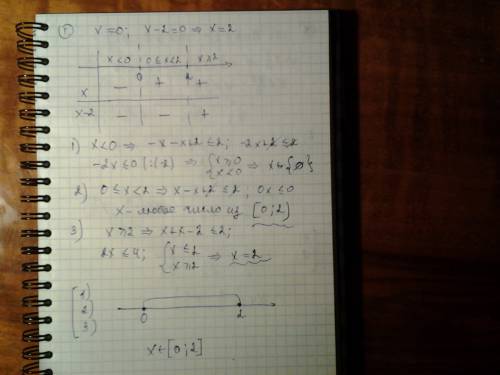 ① x=0; x-2=0 ⇒ x=2
x<0 0≤x<2 x≥2
0 2
x − + +
x-2 − − +
1) x<0 ⇒ -x-x+2≤2; -2x+2≤2
-2x≤0 |:(-2) ⇒ {x≥0 x<0 ⇒ x∈{∅}
2) 0≤x<2 ⇒ x-x+2≤2, 0x≤0
x-любое число из [0;2)
3) x≥2 ⇒ x+x-2≤2;
2x≤4; {x≤2 x≥2 ⇒ x=2
[ 1) 2) 3)
0 2
x∈[0;2]